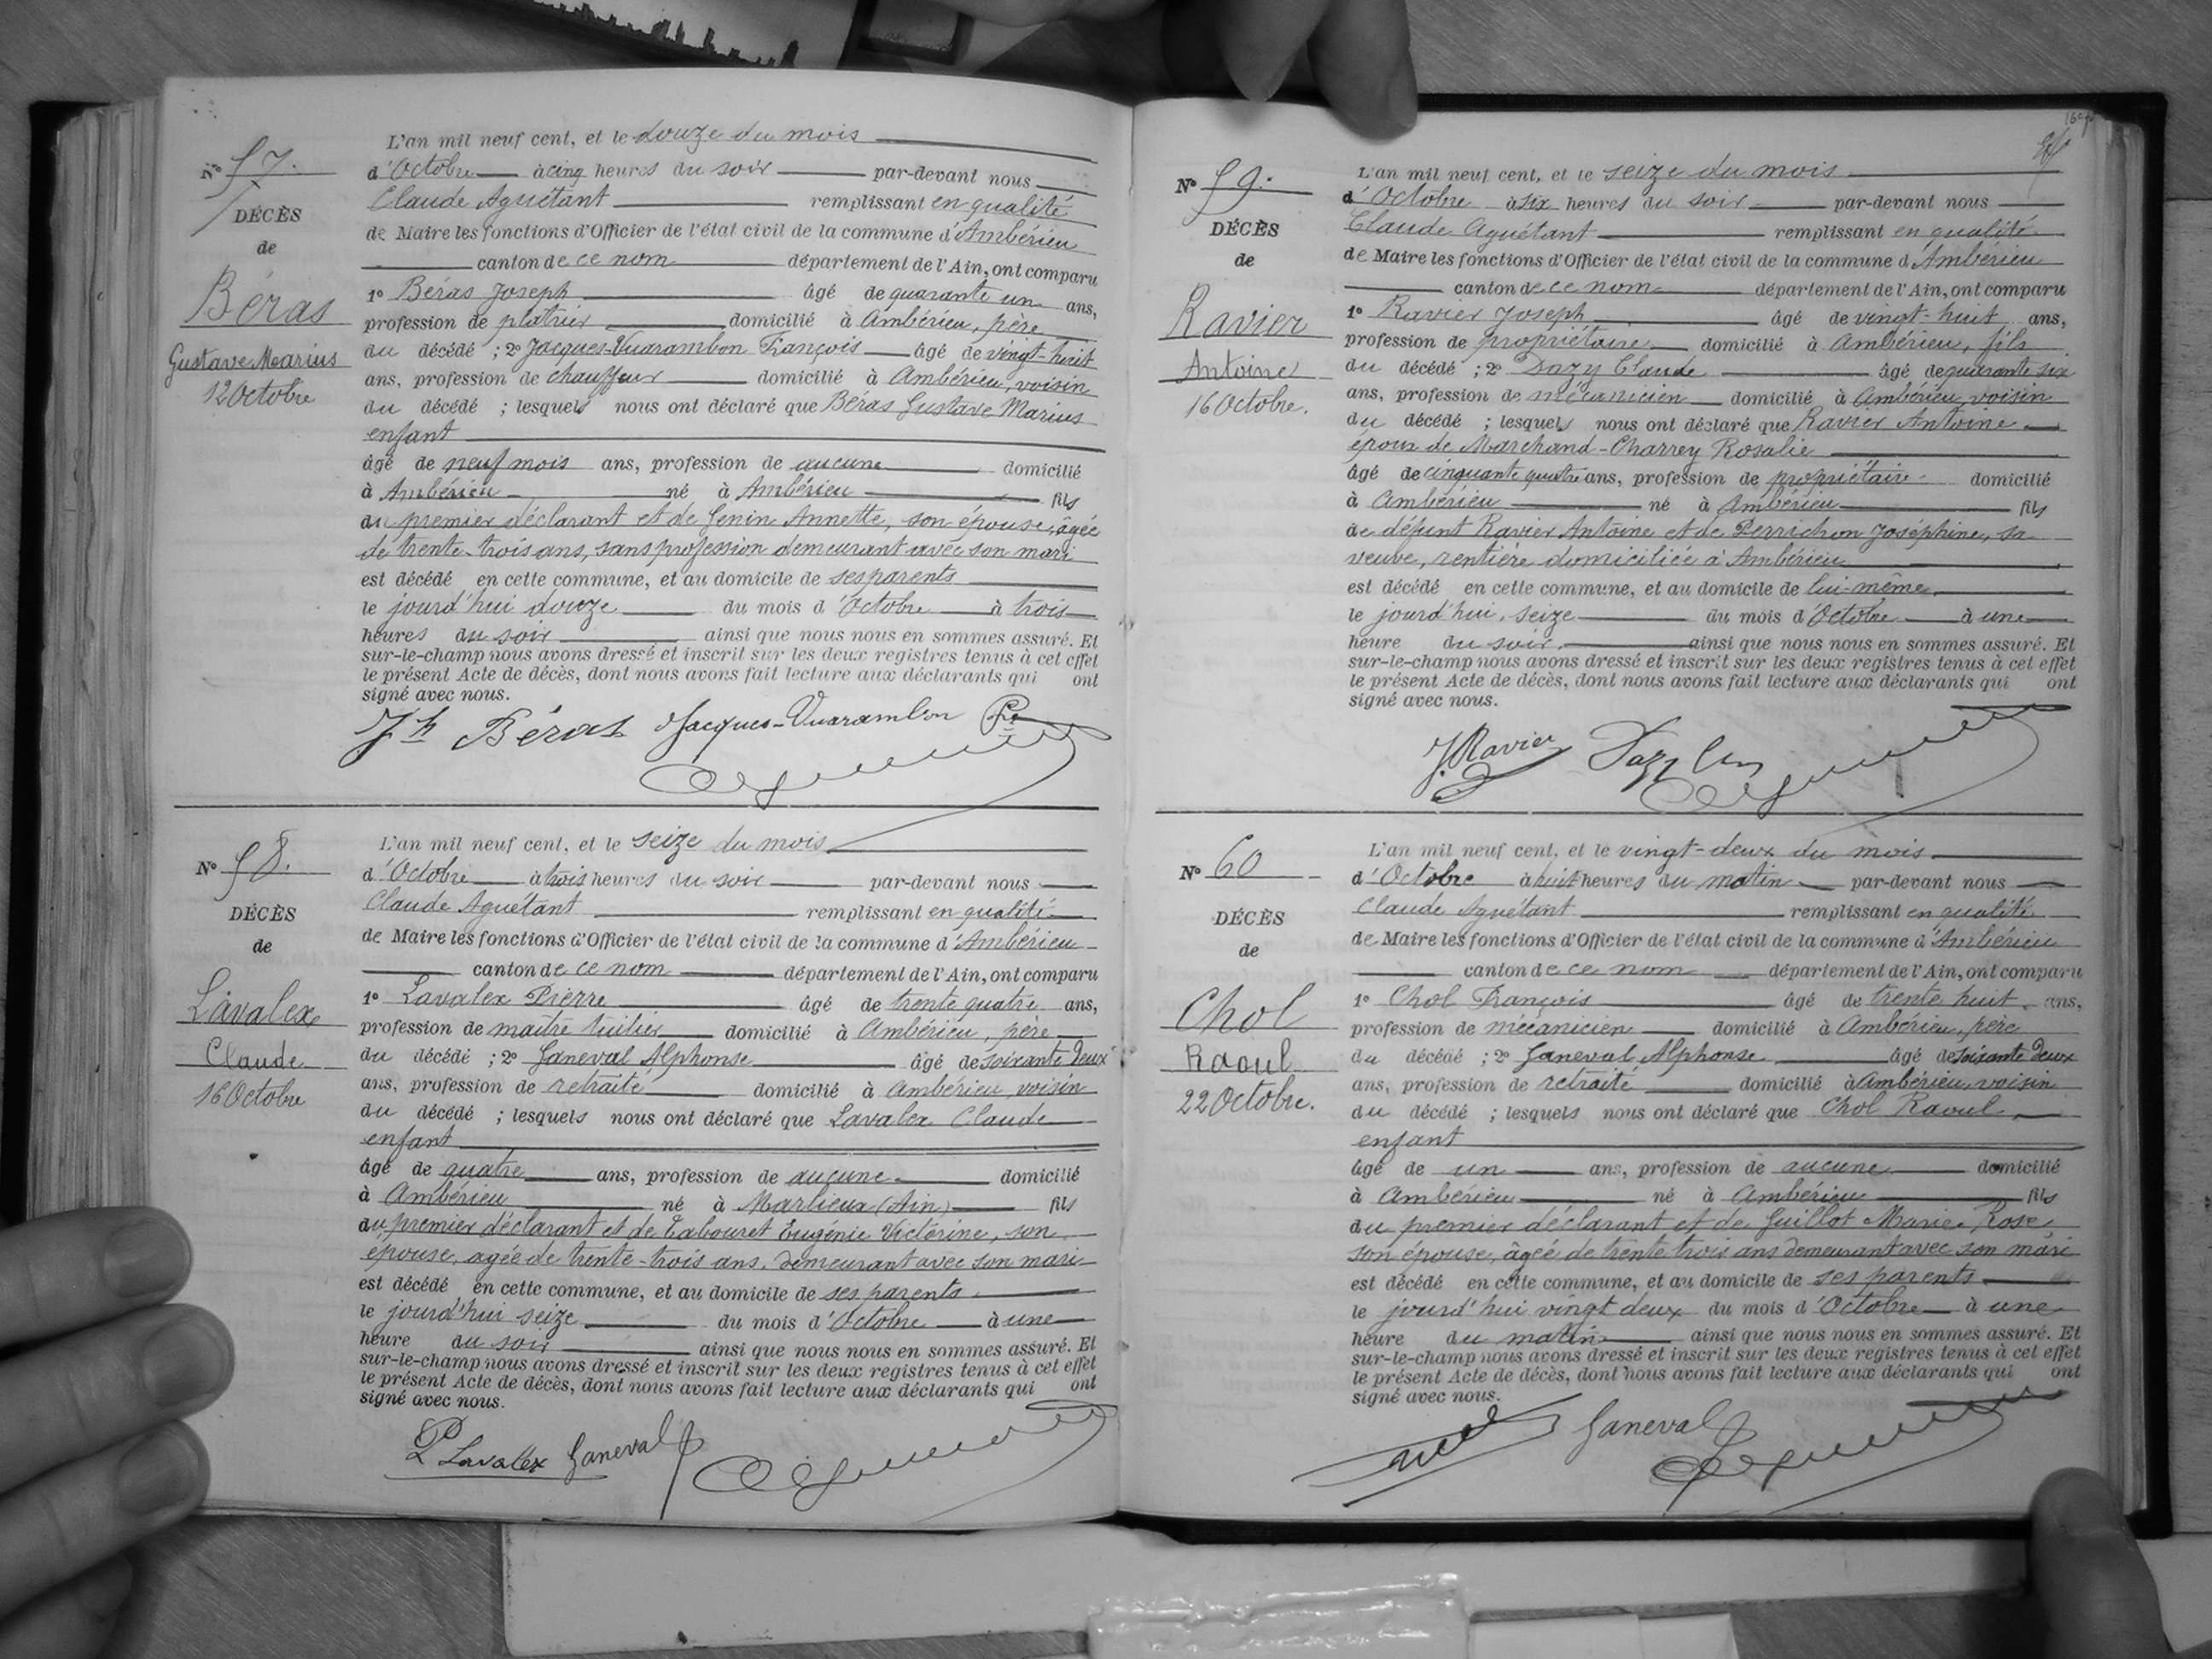 N° 57.
DÉCÈS
de
Béras
Gustave Marius
12 Octobre
L'an mil neuf cent, et le douze du mois
d'Octobre à cinq heures du soir par-devant nous
Claude Aguétant remplissant en qualité
de Maire les fonctions d'Officier de l'état civil de la commune d'Ambérieu
canton de ce nom département de l'Ain, ont comparu
1° Béras Joseph âgé de quarante un ans,
profession de platrier domicilié à Ambérieu, père
du décédé ; 2° Jacques-Vuarambon François âgé de vingt-huit
ans, profession de chauffeur domicilié à Ambérieu, voisin
du décédé ; lesquels nous ont déclaré que Béras Gustave Marius
enfant
âgé de neuf mois ans, profession de aucune domicilié
à Ambérieu né à Ambérieu fils
du premier déclarant et de Genin Annette, son épouse, âgée
de trente-trois ans, sans profession demeurant avec son mari
est décédé en cette commune, et au domicile de ses parents
le jourd'hui douze du mois d'Octobre à trois
heures du soir ainsi que nous nous en sommes assuré. Et
sur-le-champ nous avons dressé et inscrit sur les deux registres tenus à cet effet
le présent Acte de décès, dont nous avons fait lecture aux déclarants qui ont
signé avec nous.
Jh Béras Jacques-Vuarambon
N° 58.
DÉCÈS
de
Lavalex
Claude
16 Octobre
L'an mil neuf cent, et le seize du mois
d'Octobre à trois heures du soir par-devant nous
Claude Aguétant remplissant en qualité
de Maire les fonctions d'Officier de l'état civil de la commune d'Ambérieu
canton de ce nom département de l'Ain, ont comparu
1° Lavalex Pierre âgé de trente quatre ans,
profession de maître tuilier domicilié à Ambérieu, père
du décédé ; 2° Ganeval Alphonse âgé de soixante deux
ans, profession de retraité domicilié à Ambérieu voisin
du décédé ; lesquels nous ont déclaré que Lavalex Claude
enfant
âgé de quatre ans, profession de aucune domicilié
à Ambérieu né à Marlieux (Ain) fils
du premier déclarant et de Tabouret Eugénie Victorine, son
épouse, agée de trente-trois ans. demeurant avec son mari
est décédé en cette commune, et au domicile de ses parents
le jourd'hui seize du mois d'Octobre à une
heure du soir ainsi que nous nous en sommes assuré. Et
sur-le-champ nous avons dressé et inscrit sur les deux registres tenus à cet effet
le présent Acte de décès, dont nous avons fait lecture aux déclarants qui ont
signé avec nous.
P Lavalex Ganeval
N° 59.
DÉCÈS
de
Ravier
Antoine
16 Octobre.
L'an mil neuf cent, et le seize du mois
d'Octobre à six heures du soir par-devant nous
Claude Aguétant remplissant en qualité
de Maire les fonctions d'Officier de l'état civil de la commune d'Ambérieu
canton de ce nom département de l'Ain, ont comparu
1° Ravier Joseph âgé de vingt-huit ans,
profession de propriétaire domicilié à Ambérieu, fils
du décédé ; 2° Dazy Claude âgé de quarante six
ans, profession de mécanicien domicilié à Ambérieu, voisin
du décédé ; lesquels nous ont déclaré que Ravier Antoine
époux de Marchand-Charrey Rosalie
âgé de cinquante quatre ans, profession de propriétaire domicilié
à Ambérieu né à Ambérieu fils
de défunt Ravier Antoine et de Perrichon Joséphine, sa
veuve, rentière domiciliée à Ambérieu
est décédé en cette commune, et au domicile de lui-même
le jourd'hui, seize du mois d'Octobre à une
heure du soir ainsi que nous nous en sommes assuré. Et
sur-le-champ nous avons dressé et inscrit sur les deux registres tenus à cet effet
le présent Acte de décès, dont nous avons fait lecture aux déclarants qui ont
signé avec nous.
J. Ravier Dazy
N° 60
DÉCÈS
de
Chol
Raoul
22 Octobre.
L'an mil neuf cent, et le vingt-deux du mois
d'Octobre à huit heures du matin par-devant nous
Claude Aguétant remplissant en qualité
de Maire les fonctions d'Officier de l'état civil de la commune d'Ambérieu
canton de ce nom département de l'Ain, ont comparu
1° Chol François âgé de trente huit ans,
profession de mécanicien domicilié à Ambérieu, père
du décédé ; 2° Ganeval Alphonse âgé de soixante deux
ans, profession de retraité domicilié à Ambérieu, voisin
du décédé ; lesquels nous ont déclaré que Chol Raoul
enfant
âgé de un ans, profession de aucune domicilié
à Ambérieu né à Ambérieu fils
du premier déclarant et de Guillot Marie Rose
son épouse, âgée de trente trois ans demeurant avec son mari
est décédé en cette commune, et au domicile de ses parents
le jourd'hui vingt deux du mois d'Octobre à une
heure du matin ainsi que nous nous en sommes assuré. Et
sur-le-champ nous avons dressé et inscrit sur les deux registres tenus à cet effet
le présent Acte de décès, dont nous avons fait lecture aux déclarants qui ont
signé avec nous.
Ganeval